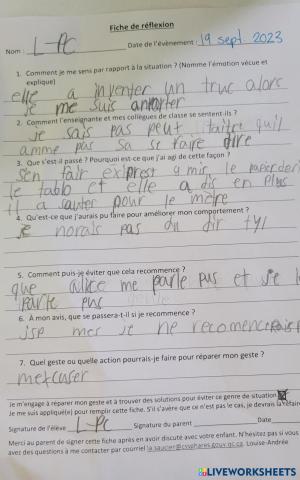 Fiche de réflexion
Nom : L-PC Date de l'évènement : 19 sept 2023
1. Comment je me sens par rapport à la situation ? (Nomme l'émotion vécue et
explique)
elle a inventer un truc alors
je me suis
2. Comment l'enseignante et mes collègues de classe se sentent-ils ?
je sais pas peut qu'il
amme pas sa se faire dire
3. Que s'est-il passé ? Pourquoi est-ce que j'ai agi de cette façon ?
Sen fair exiprest a mir le
le tablo et elle a dis en plus
il a sauter pour le metre
4. Qu'est-ce que j'aurais pu faire pour améliorer mon comportement ?
je norais pas du dir tyl
5. Comment puis-je éviter que cela recommence ?
que alice me parle pas et je l
parle pas
6. À mon avis, que se passera-t-il si je recommence ?
jsp mes je ne pas
7. Quel geste ou quelle action pourrais-je faire pour réparer mon geste ?
metcuser
Je m'engage à réparer mon geste et à trouver des solutions pour éviter ce genre de situation
Je me suis appliqué(e) pour remplir cette fiche. S'il s'avère que ce n'est pas le cas, je devrais la refaire
Signature de l'élève L-PC Signature du parent Date
Merci au parent de signer cette fiche après en avoir discuté avec votre enfant. N'hésitez pas si vous
avez des questions à me contacter par courriel la.saucier@cssphares.gouv.qc.ca. Louise-Andrée
LIVEWORKSHEETS